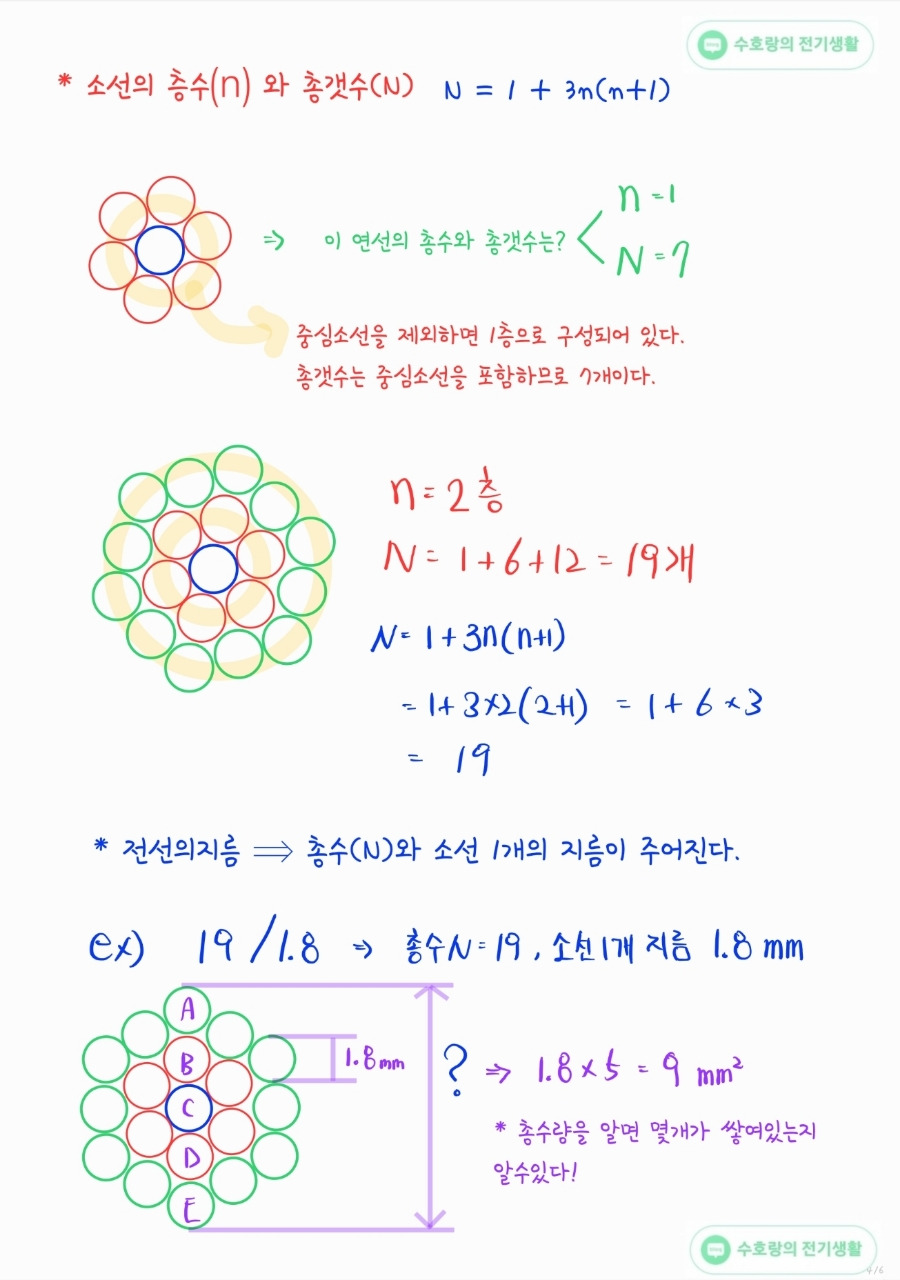 수호랑의 전기생활
* 소선의 층수(n) 와 총갯수(N) N = 1 + 3n(n+1)
n = 1
⇒ 이 연선의 층수와 총갯수는?
N = 7
중심소선을 제외하면 1층으로 구성되어 있다.
총갯수는 중심소선을 포함하므로 7개이다.
n = 2층
N = 1+6+12 = 19개
N = 1+3n(n+1)
= 1+3×2(2+1) = 1+6×3
= 19
* 전선의지름 ⇒ 총수(N)와 소선 1개의 지름이 주어진다.
ex) 19/1.8 → 총수N=19, 소선1개 지름 1.8mm
A
B
C
D
E
1.8mm
? ⇒ 1.8×5 = 9 mm²
* 총수량을 알면 몇개가 쌓여있는지
알수있다!
수호랑의 전기생활
4/6